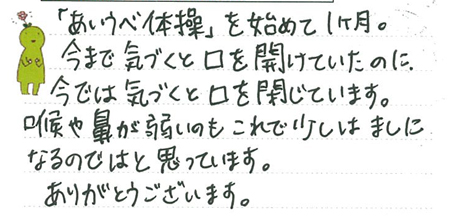 「あいうべ体操」を始めて1ヶ月。
今まで気づくと口を開けていたのに、
今では気づくと口を閉じています。
喉や鼻が弱いのもこれで少しはましに
なるのではと思っています。
ありがとうございます。